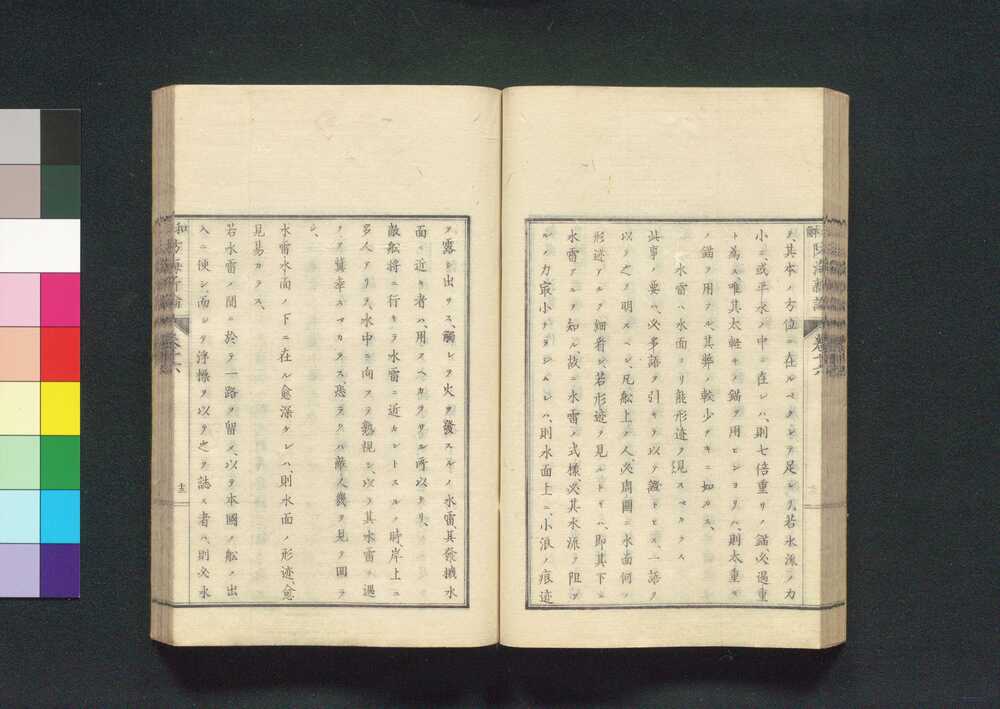 ヲ、其本ノ方位ニ在ルベクシテ足レリ、若水派ノ力
小ニ或平水ノ中ニ在レハ、則七倍重リノ錨、必過重
ト為ス、唯其太軽キノ錨ヲ用ヒンヨリハ、則太重キ
ノ錨ヲ用フル、其弊ノ較少ナキニ如カス、
水雷ハ水面ヨリ能形迹ヲ見スベカラス
此事ノ要ハ、必多語ヲ引キテ以テ證トセス、一語ヲ
以テ之ヲ明スベシ、凡船上ノ人、必周圍ニ水面何ノ
形迹アルヲ細看シ、若形迹ヲ見ルトキハ、即其下ニ
水雷アルヲ知ル、故ニ水雷ノ式様、必其水流ヲ阻ツ
ルノ力最小ナラシムレハ、則水面上ニ、小浪ノ痕迹
ヲ露シ出サス、觸レテ火ヲ發スルノ水雷其發機水
面ニ近キ者ハ、用フヘカラサル所以ナリ、
敵船將ニ行キテ水雷ニ近カントスルノ時、岸上ニ
多人アリテ、水中ニ向フテ熟視シ、以テ其水雷ニ遇
フヲ冀幸スヘカラス、恐ラクハ敵人幾ヲ見テ回ラ
ン、
水雷水面ノ下ニ在ル愈深ケレハ、則水面ノ形迹、愈
見易カラス、
若水雷ノ間ニ於テ一路ヲ留メ、以テ本國ノ船ノ出
入ニ便シ、而シテ浮標ヲ以テ之ヲ誌ス者ハ、則必水
防海新論
卷十六
十三